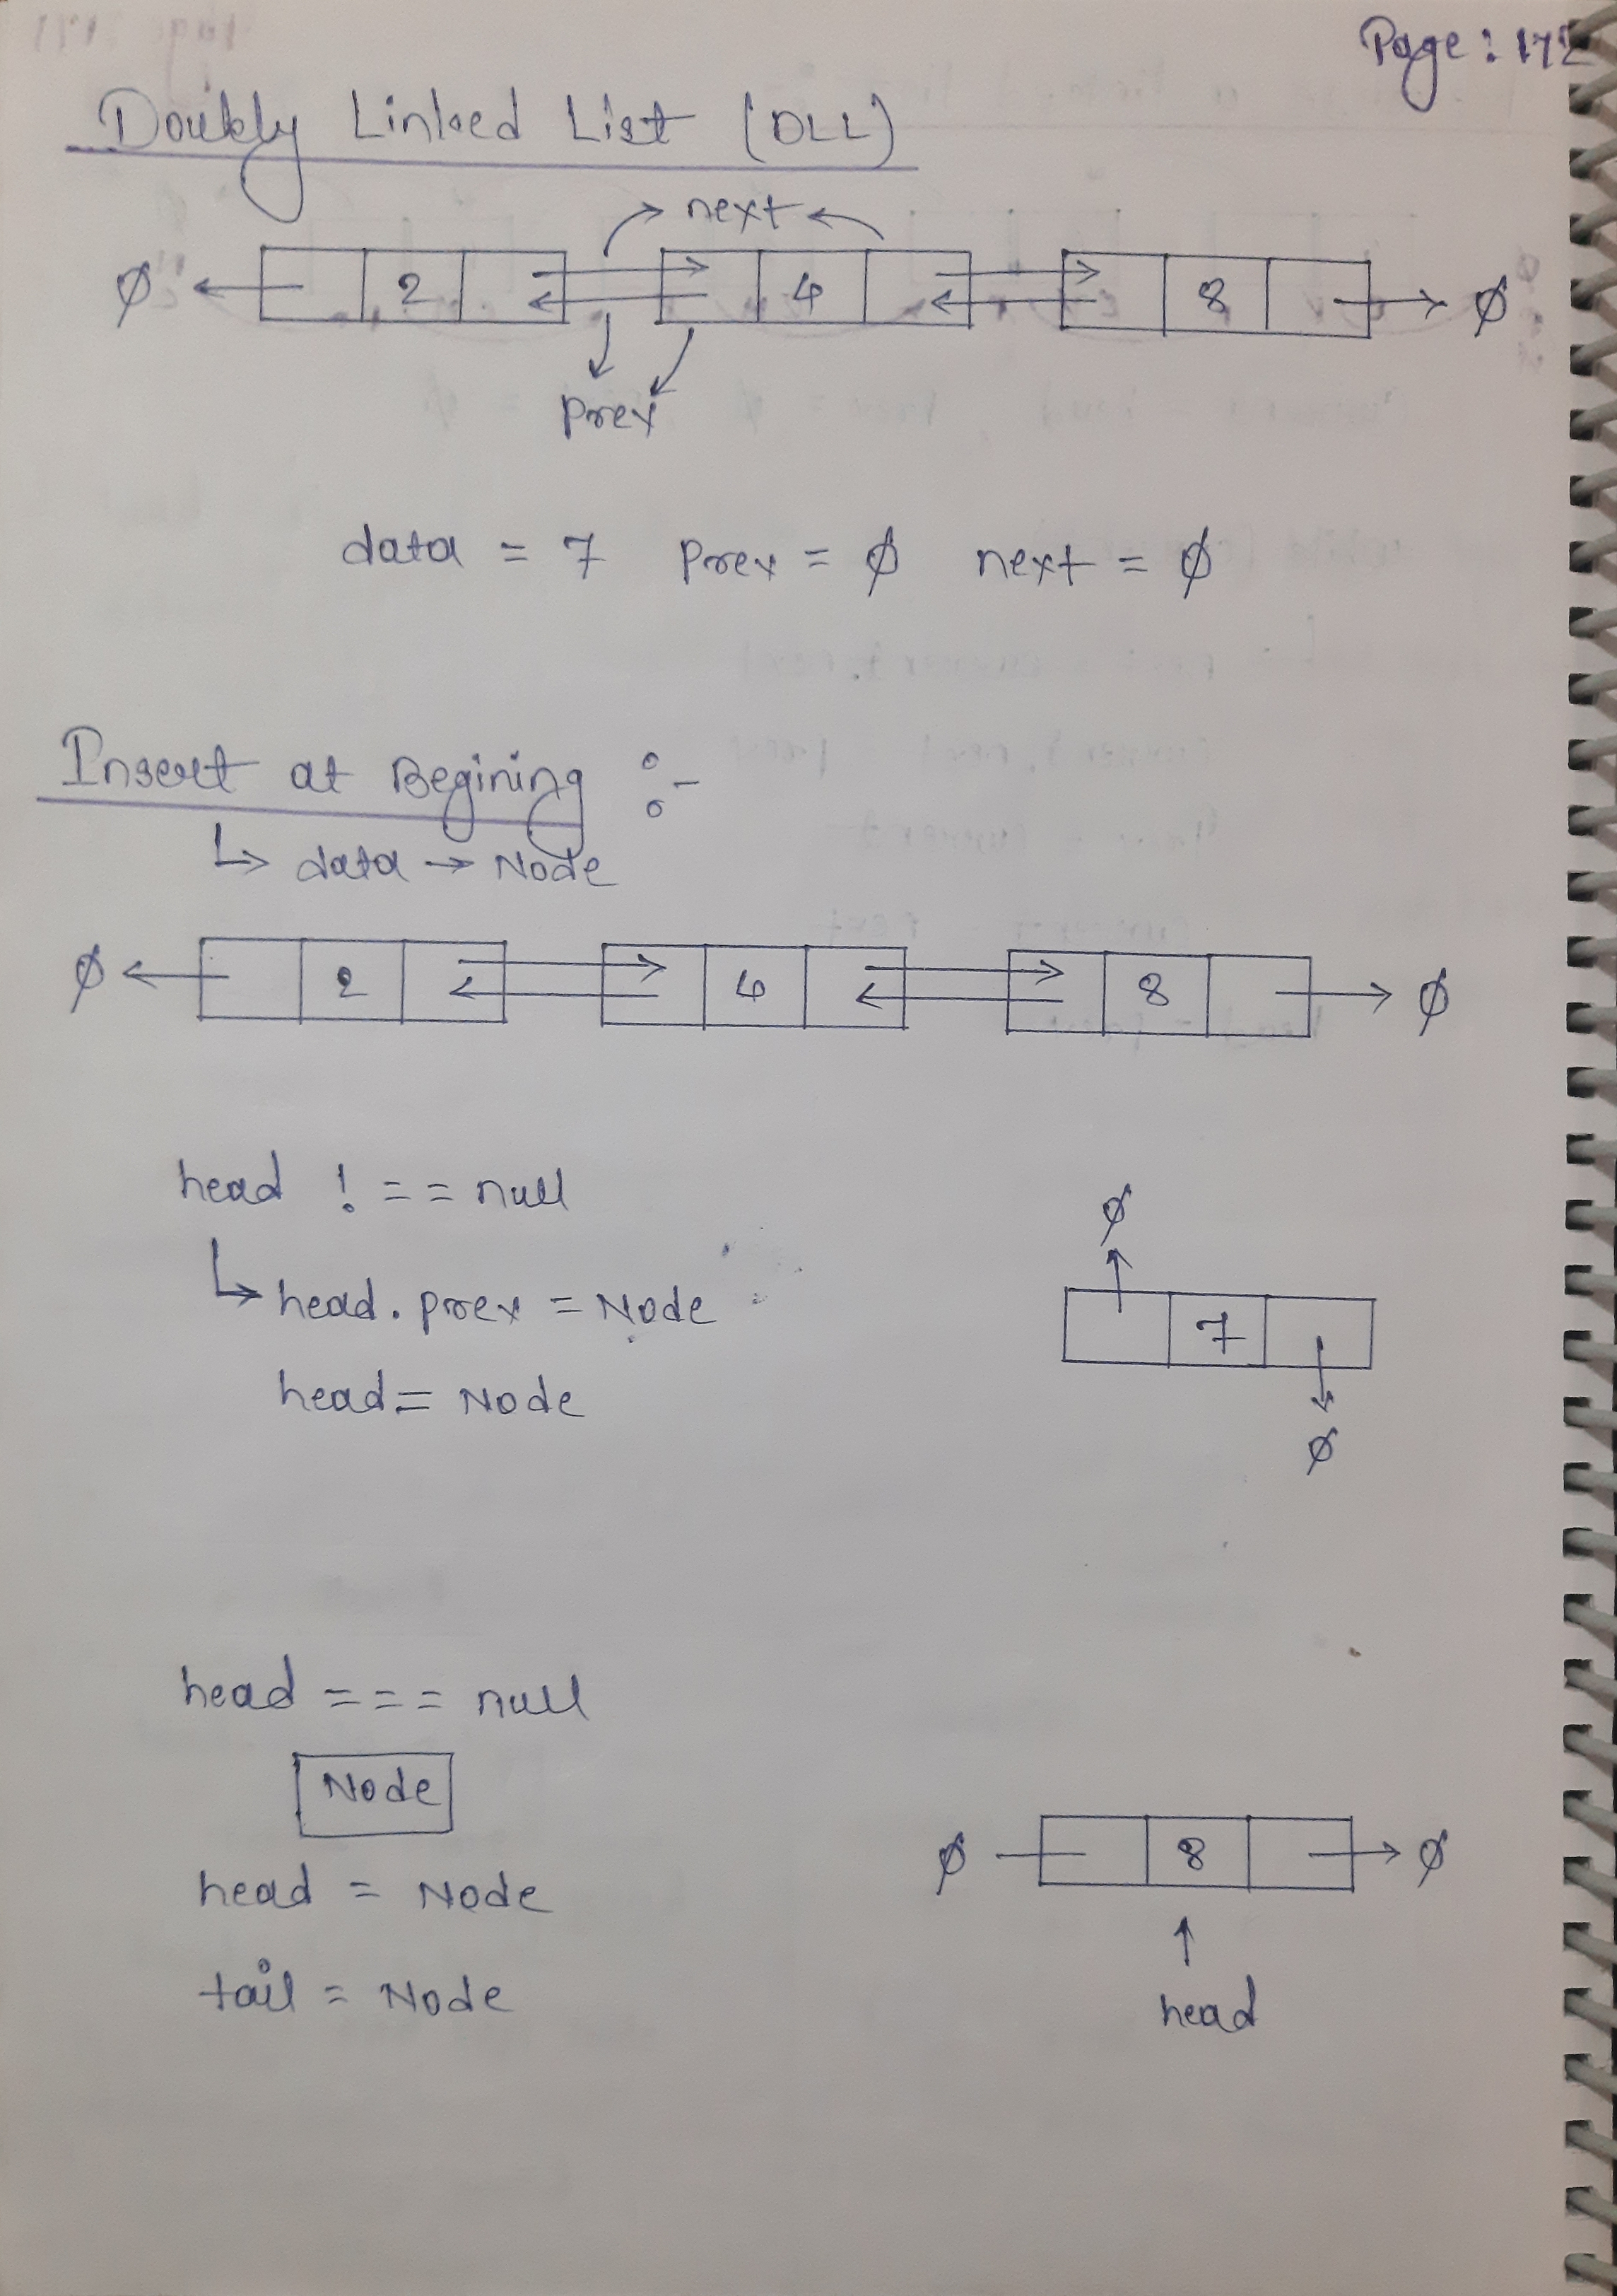 Page: 172
Doubly Linked List (DLL)
next
ϕ 2 4 8 ϕ
prev
data = 7 prev = ϕ next = ϕ
Insert at Begining :-
↳ data → Node
ϕ 2 4 8 ϕ
head !== null
ϕ
↳ head.prev = Node
7
head = Node
ϕ
head === null
Node
ϕ 8 ϕ
head = Node
tail = Node
head